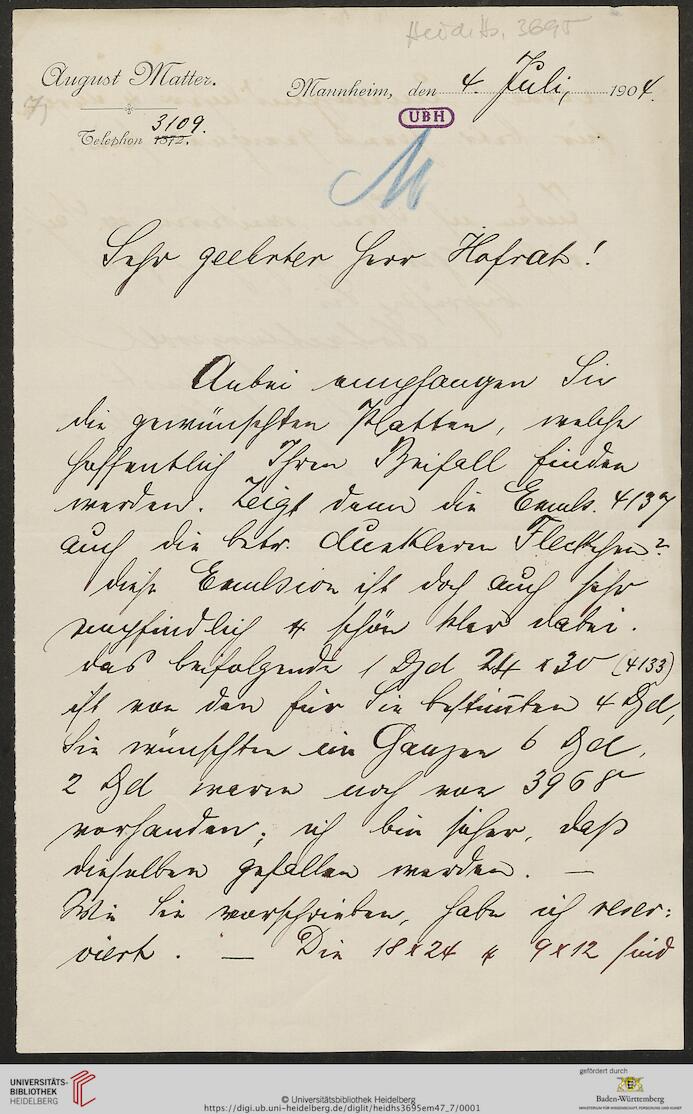 Heid. Hs. 3695
August Matter.
Mannheim, den 4. Juli, 1904.
7)
3109.
Telephon 1872.
UBH
M
Sehr geehrter Herr Hofrath!
Anbei empfangen Sie
die gewünschten Platten, welche
hoffentlich Ihren Beifall finden
werden. Zeigt denn die Emuls. 4137
auch die betr. dunkleren Fleckchen?
diese Emulsion ist doch auch sehr
empfindlich & schön klar dabei.
das beifolgende 1 Dzd 24 x 30 (4133)
ist von den für Sie bestimmten 4 Dzd,
Sie wünschten im Ganzen 6 Dzd,
2 Dzd waren noch von 3968
vorhanden; ich bin sicher, daß
dieselben gefallen werden. —
Wie Sie vorschrieben, habe ich reser-
viert. — Die 18x24 & 9x12 sind
UNIVERSITÄTS-
BIBLIOTHEK
HEIDELBERG
© Universitätsbibliothek Heidelberg
https://digi.ub.uni-heidelberg.de/diglit/heidhs3695em47_7/0001
gefördert durch
Baden-Württemberg
MINISTERIUM FÜR WISSENSCHAFT, FORSCHUNG UND KUNST